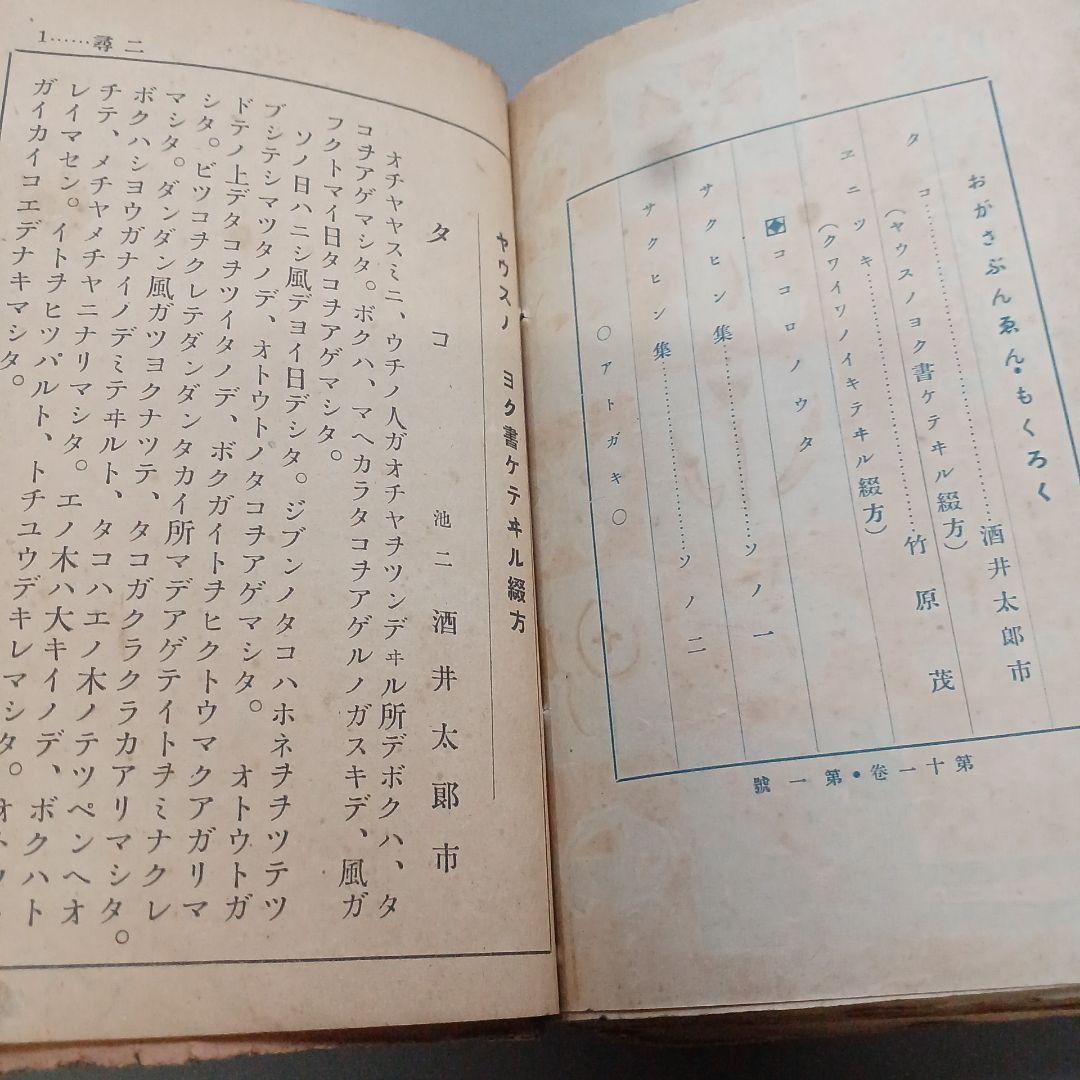 おがさぶんゑん・もくろく
タコ……………………酒井太郎市
(ヤウスノヨク書ケテヰル綴方)
ヱニツキ……………………竹原茂
(クワイワノイキテヰル綴方)
ココロノウタ
サクヒン集……………………ソノ一
サクヒン集……………………ソノ二
○アトガキ○
第十一卷・第一號
1……尋二
ヤウスノ ヨク書ケテヰル綴方
タコ 池二 酒井太郎市
オチヤヤスミニ、ウチノ人ガオチヤヲツンデヰル所デボクハ、タ
コヲアゲマシタ。ボクハ、マヘカラタコヲアゲルノガスキデ、風ガ
フクトマイ日タコヲアゲマシタ。
ソノ日ハニシ風デヨイ日デシタ。ジブンノタコハホネヲヲツテツ
ブシテシマツタノデ、オトウトノタコヲアゲマシタ。 オトウトガ
ドテノ上デタコヲツイタノデ、ボクガイトヲヒクトウマクアガリマ
シタ。ビツコヲクレテダンダンタカイ所マデアゲテイトヲミナクレ
マシタ。ダンダン風ガツヨクナツテ、タコガクラクラカアリマシタ。
ボクハシヨウガナイノデミテヰルト、タコハエノ木ノテツペンヘオ
チテ、メチヤメチヤニナリマシタ。エノ木ハ大キイノデ、ボクハト
レイマセン。イトヲヒツパルト、トチユウデキレマシタ。
ガイカイコエデナキマシタ。